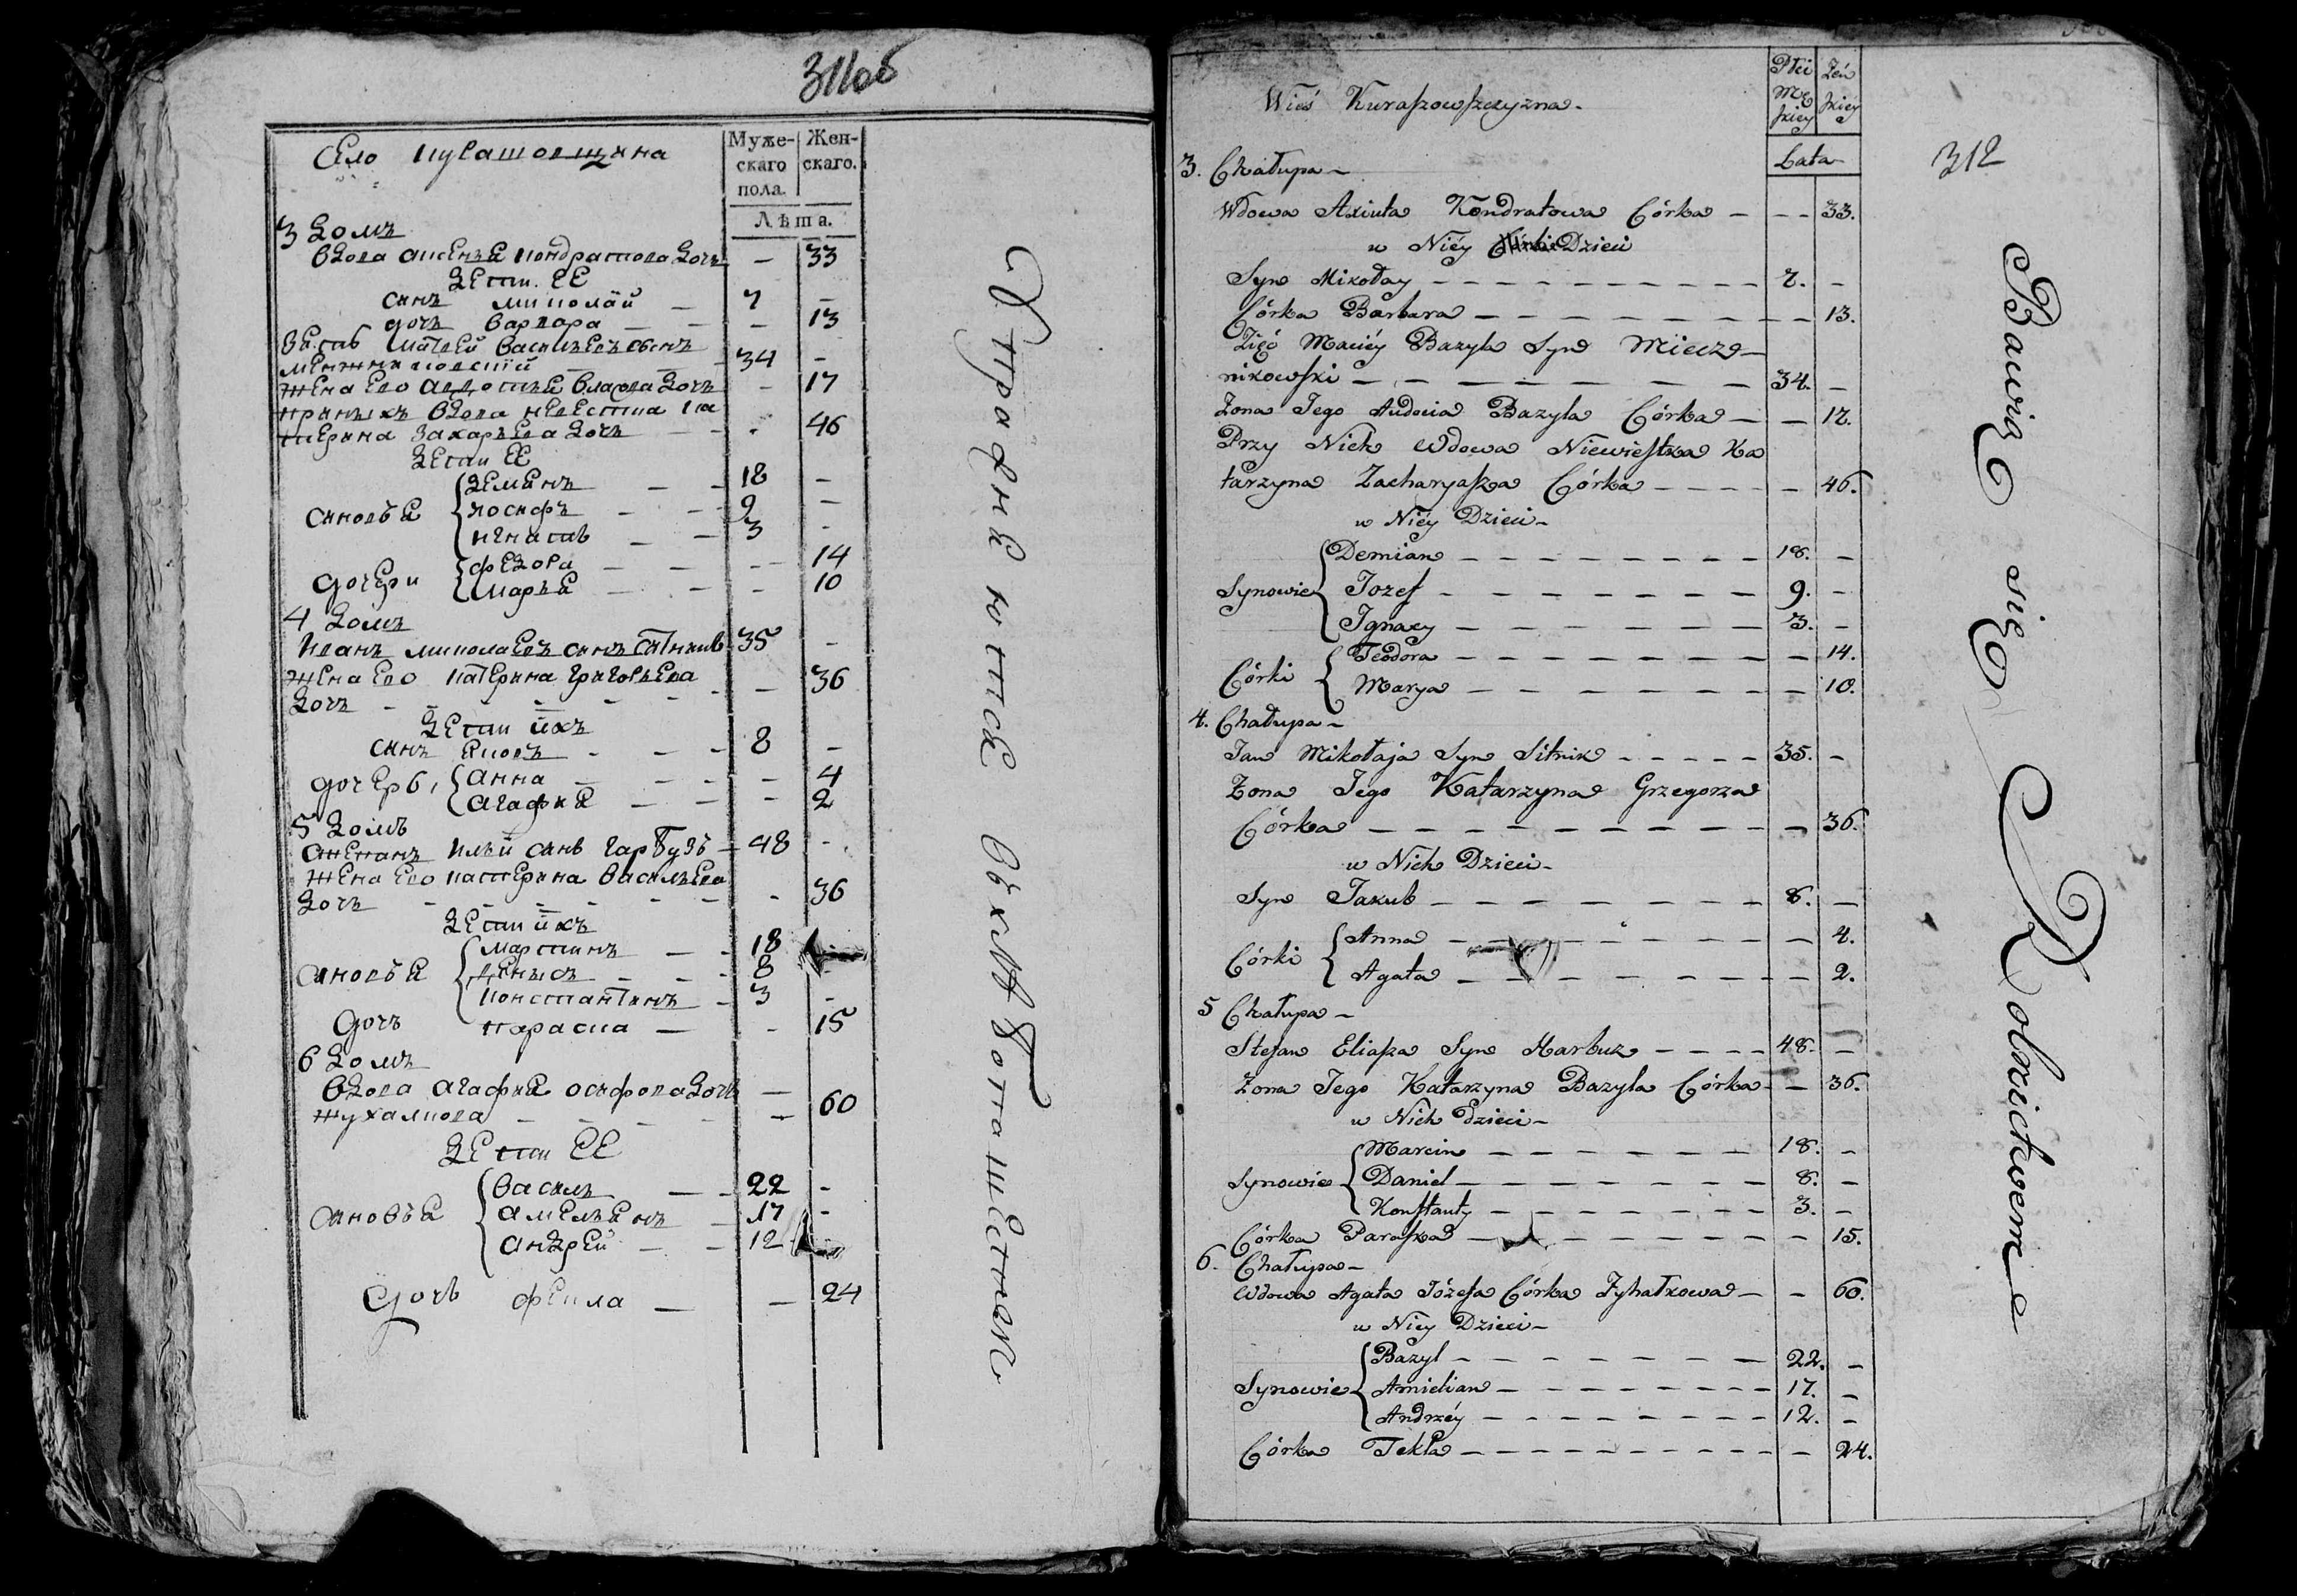 311об
Село Курашовщина
Муже-
скаго
пола.
Жен-
скаго.
Лѣта.
3 Домъ
вдова аксенья кондратова дочь — 33
Дети ее
синъ миколай — 7 —
дочь варвара — — — 13
зять матвей васильевъ синъ
менжиковский — — 34 —
жена его авдотья власова дочь — 17
при нихъ вдова невестка ка
терина захарьева дочь — — - 46
Дети ее
синовья
демянъ — — 18 —
иосифъ — — 9 —
игнатъ — — 3 -
дочери
федора — — — 14
марья — — - 10
4 Домъ
Иванъ миколаевъ синъ ситникъ 35 -
жена его катерина григорьева
дочь - - - - - — 36
Дети ихъ
синъ яковъ - — — 8 —
дочерь,
анна — — - — 4
агафия — — - 2
5 Домъ
степанъ ильи синъ гарбузъ — 48 -
жена его катерина васильева
дочь - - - - - - 36
Дети ихъ
синовья
мартинъ — - 18
денысъ — — - 8 -
константинъ - 3 -
дочь параска — - 15
6 Домъ
вдова агафия осифова дочь —
жухалкова — — — 60
Дети ее
синовья
василъ — - 22 -
амельянъ — 17 -
андрей — - 12
дочь фекла — — 24
Упрожнеються въ хлѣбопашестве
Wieś Kuraszowszczyzna.
Płci
Mę
skiey
Żeń
skiey
Lata
312
3. Chałupa —
Wdowa Axiuta Kondratowa Córka — — — 33.
u Niéy Dzieci
Syn Mikołay — — — — — — — — 7. —
Córka Barbara — — — — — — — — 13.
Zięć Maciéy Bazyla Syn Miecze—
nikowski — — — — — — — — 34. —
Żona Jego Audocia Bazyla Córka — — 17.
Przy Nich Wdowa Niewiestka Ka
tarzyna Zacharyasza Córka — — — — — 46.
u Niéy Dzieci —
Synowie
Demian — — — — — — — 18. —
Jozef — — — — — — — 9. —
Jgnacy — — — — — — — 3. —
Córki
Teodora — — — — — — — — 14.
Marya — — — — — — — — 10.
4. Chałupa —
Jan Mikołaja Syn Sitnik — — — — — 35. —
Żona Jego Katarzyna Grzegorza
Córka — — — — — — — — — — 36.
u Nich Dzieci —
Syn Jakub — — — — — — — 8. —
Córki
Anna — — — — — — — — 4.
Agata — — — — — — — — 2.
5 Chałupa —
Stefan Eliasza Syn Harbuz — — — — 48. —
Żona Jego Katarzyna Bazyla Córka — — 36.
u Nich Dzieci —
Synowie
Marcin — — — — — — — 18. —
Daniel — — — — — — — 8. —
Konstanty — — — — — — — 3. —
Córka Paraska — — — — — — — — 15.
6. Chałupa —
Wdowa Agata Józefa Córka Zyhałkowa — — 60.
u Niey Dzieci —
Synowie
Bazyl — — — — — — — 22. —
Amielian — — — — — — — 17. —
Andrzéy — — — — — — — 12. —
Córka Tekla — — — — — — — — — 24.
Bawią się Rolnictwem